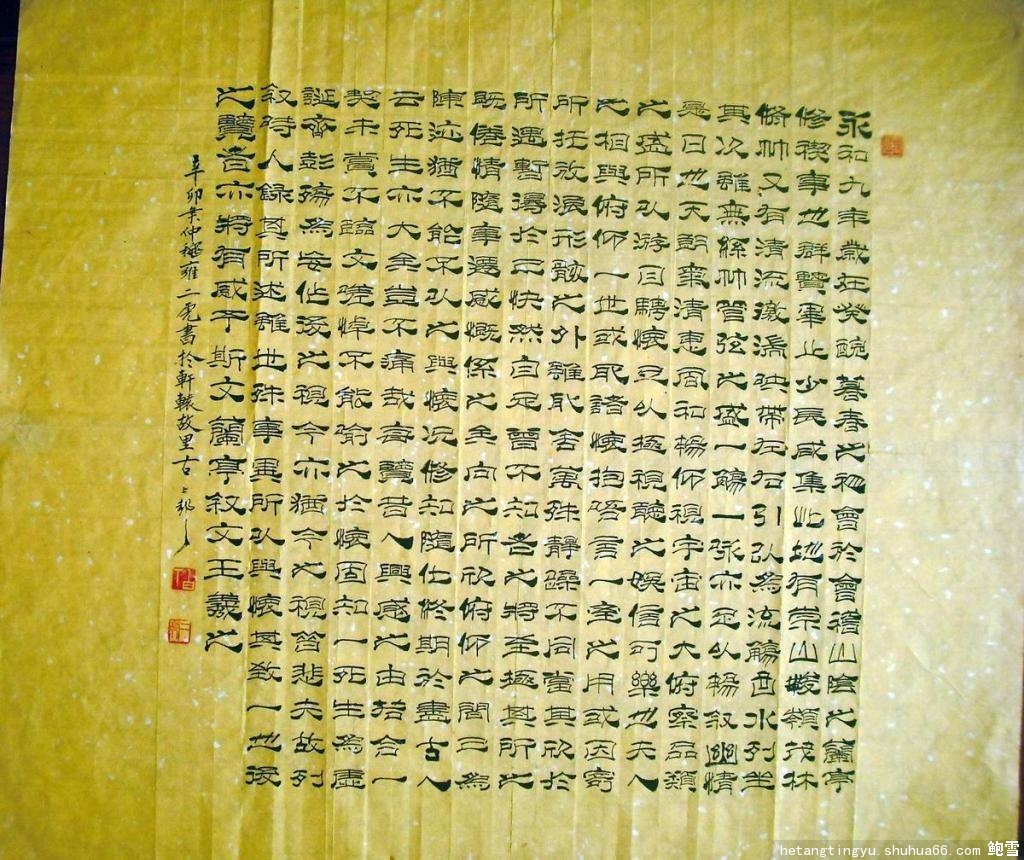 永和九年歲在癸醜暮春之初會於會稽山陰之蘭亭
修禊事也群賢畢至少長咸集此地有崇山峻嶺茂林
脩竹又有清流激湍映帶左右引以為流觴曲水列坐
其次雖無絲竹管弦之盛一觴一詠亦足以暢敘幽情
是日也天朗氣清惠風和暢仰視宇宙之大俯察品類
之盛所以游目騁懷足以極視聽之娛信可樂也夫人
之相與俯仰一世或取諸懷抱晤言一室之內或因寄
所託放浪形骸之外雖取舍萬殊靜躁不同當其欣於
所遇暫得於己快然自足曾不知老之將至極其所之
既倦情隨事遷感慨係之矣向之所欣俯仰之間已為
陳迹猶不能不以之興懷況修短隨化終期於盡古人
云死生亦大矣豈不痛哉每覽昔人興感之由若合一
契未嘗不臨文嗟悼不能喻之於懷固知一死生為虛
誕齊彭殤為妄作後之視今亦猶今之視昔悲夫故列
敘時人錄其所述雖世殊事異所以興懷其致一也後
之覽者亦將有感于斯文蘭亭敘文王羲之
辛卯年仲穐雍二虎書於軒轅故里古
hetangtingyu.shuhua66.com 鲍雪